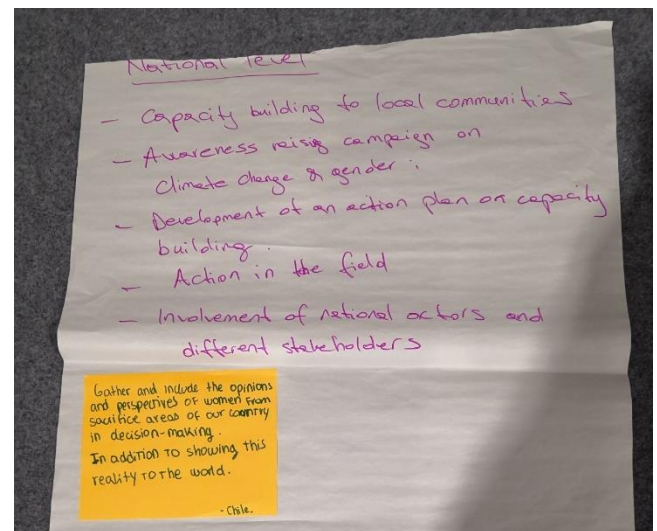 National level
- Capacity building to local communities
- Awareness raising campaign on
climate change & gender.
- Development of an action plan on capacity
building.
- Action in the field
- Involvement of national actors and
different stakeholders
Gather and include the opinions
and perspectives of women from
sacrifice areas of our country
in decision-making.
In addition to showing this
reality to the world.
- Chile.